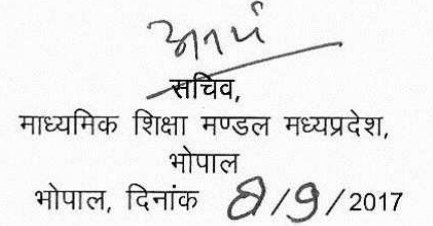 सचिव,
माध्यमिक शिक्षा मण्डल मध्यप्रदेश,
भोपाल
भोपाल, दिनांक 8/9/2017